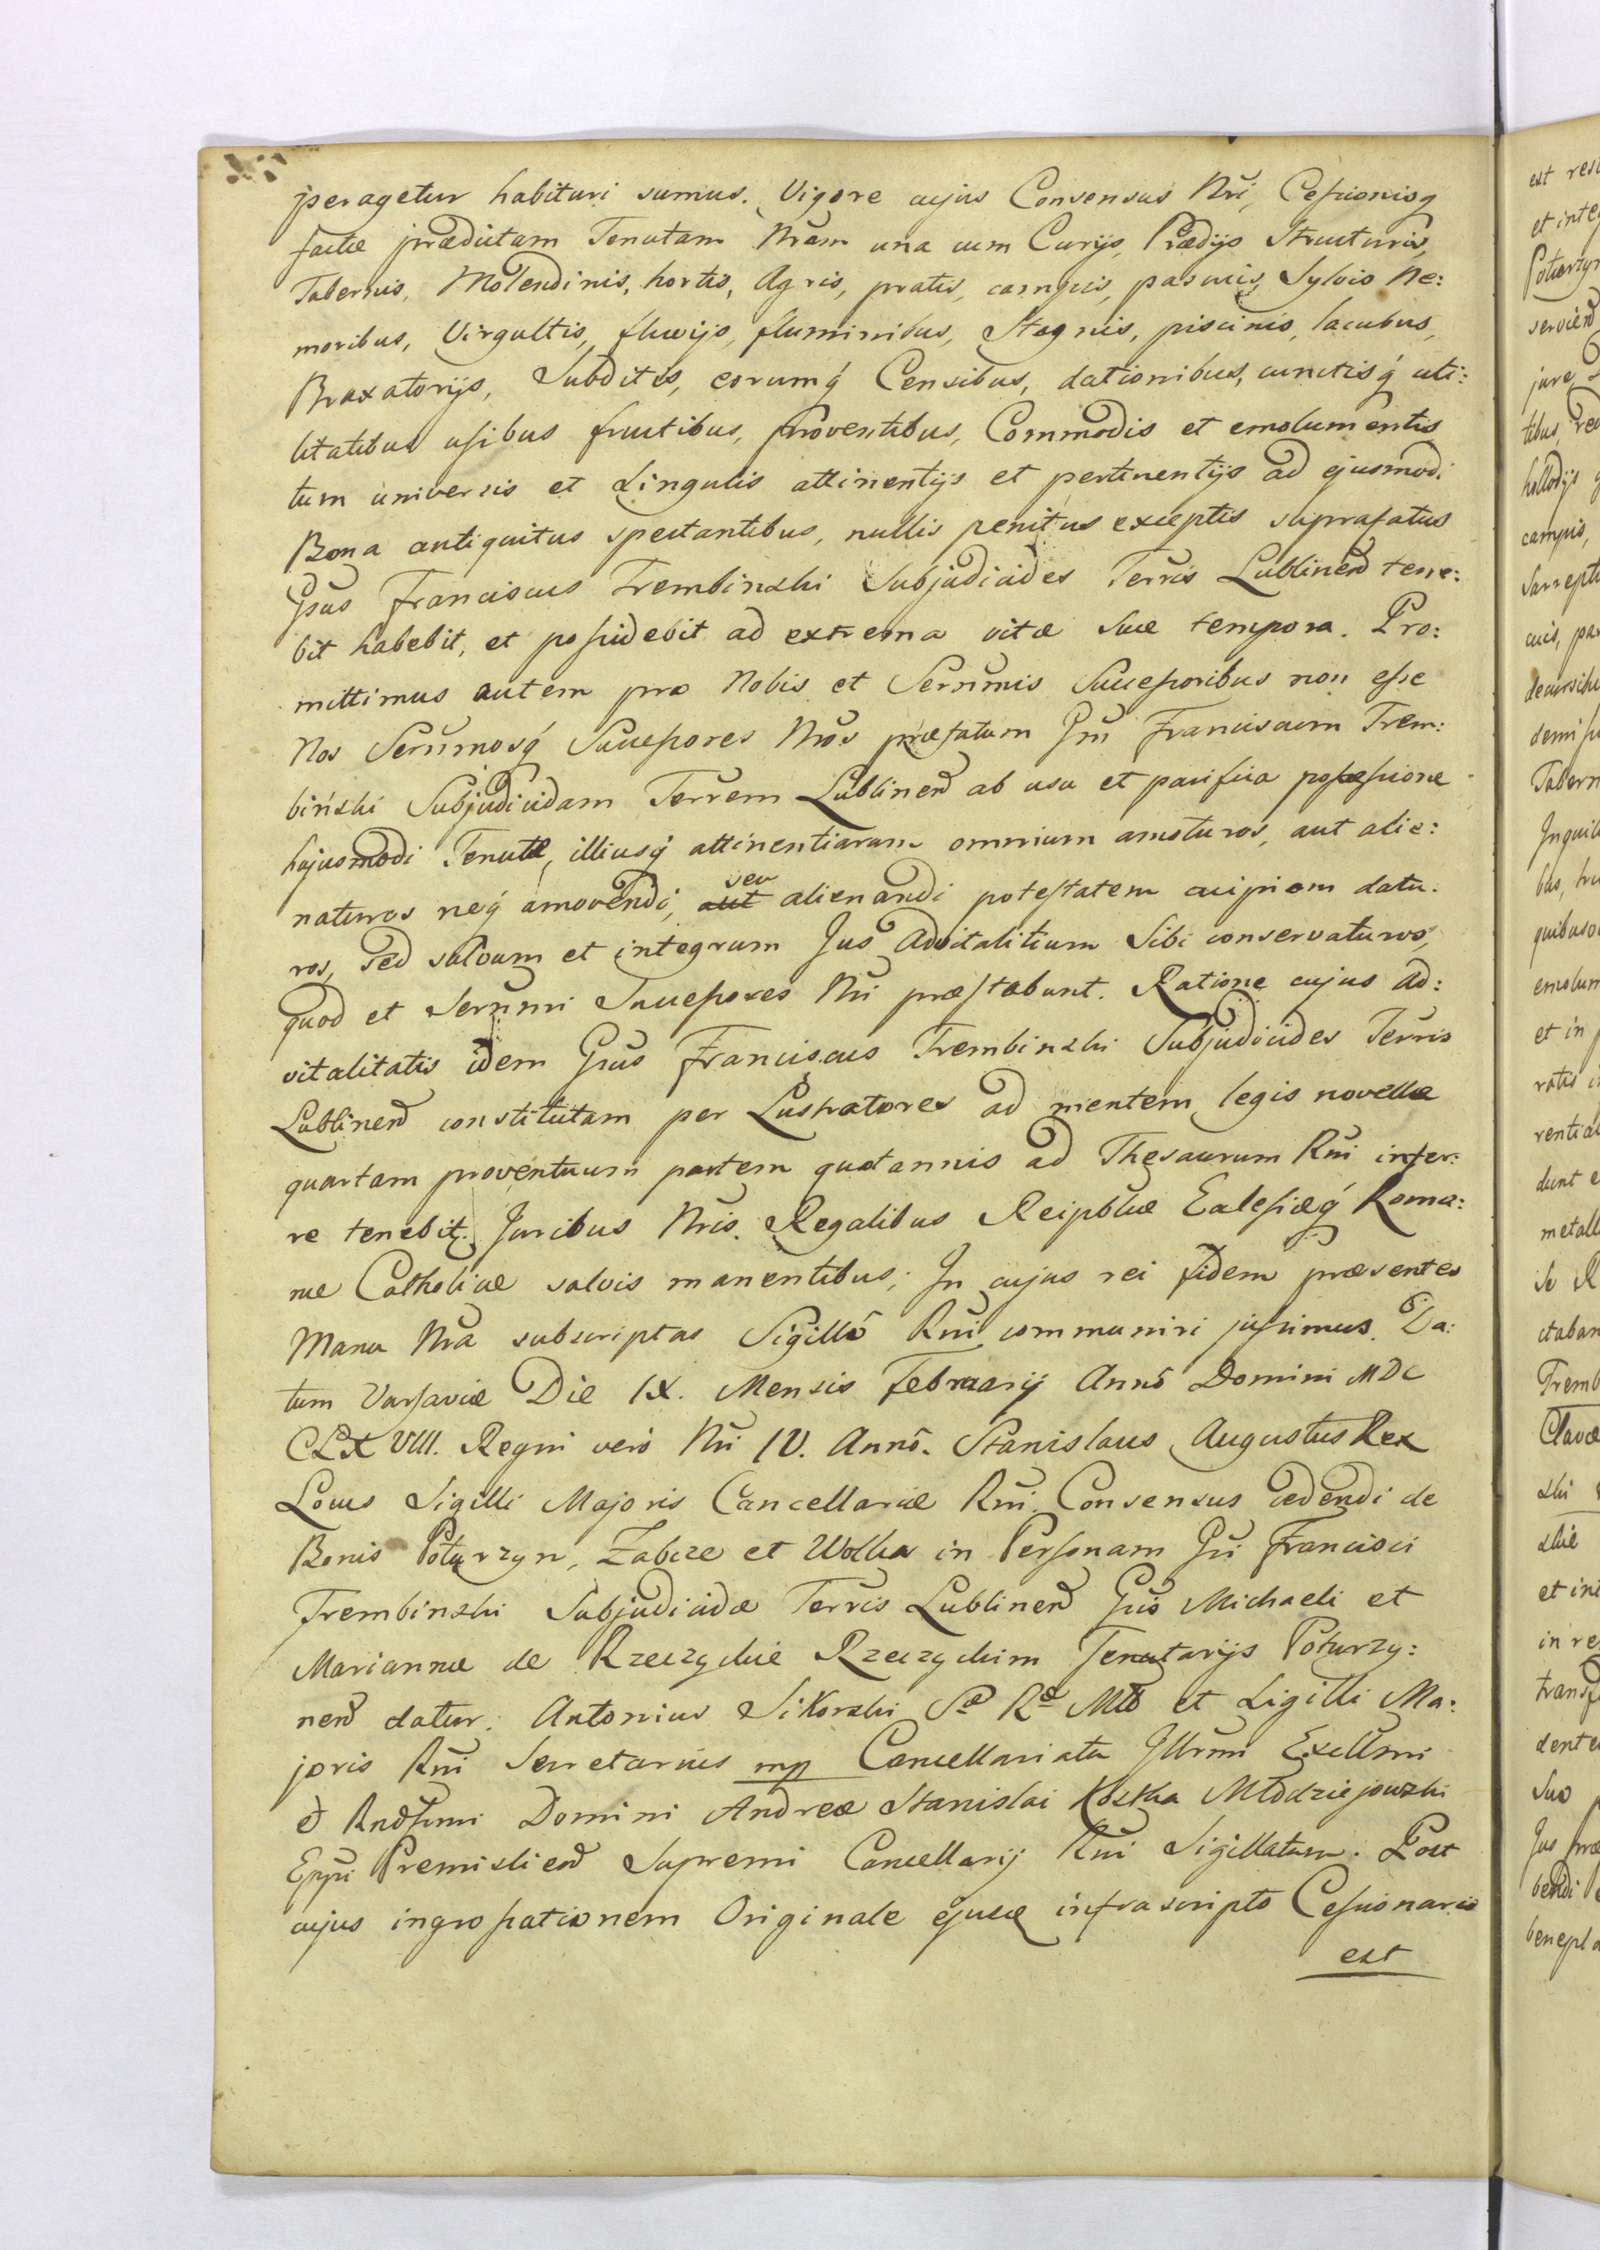 peragetur habituri sumus. Vigore cujus Consensus Nri, Cessionisq
factæ prædictam Tenutam Nram una cum Curijs, Prædijs Structuris,
Tabernis, Molendinis, hortis, Agris, pratis, campis, pascuis, Sylvis Ne:
moribus, Virgultis, fluvijs, fluminibus, Stagnis, piscinis, lacubus,
Braxatorijs, Subditis, eorumq́ Censibus, dationibus, cunctisq́ uti:
litatibus usibus fructibus, proventibus, Commodis et emolumentis
tum universis et Singulis attinentijs et pertinentijs ad ejusmodi
Bona antiquitus spectantibus, nullis penitus exceptis suprafatus
Gsus Franciscus Trembinski Subjudicides Terris Lublinen tene:
bit habebit, et possidebit ad extrema vitæ suæ tempora. Pro:
mittimus autem pro Nobis et Serenmis Successoribus non esse
Nos Serenmosq́ Successores Nros præfatum Gm Franciscum Trem:
biński Subjudicidam Terrem Lublinen ab usu et pacifica possessione
hujusmodi Tenutæ, illiusq́ attinentiarum omnium amoturos, aut alie:
naturos neq́ amovendi, aut seu alienandi potestatem cuipiam datu:
ros, sed salvum et integrum Jus Advitalitium Sibi conservaturos,
quod et Serenmi Successores Nri præstabunt. Ratione cujus ad:
vitalitatis idem Gsus Franciscus Trembinski Subjudicides Terris
Lublinen constitutam per Lustratores ad mentem legis novellæ
quartam proventuum partem quotannis ad Thesaurum Rni infer:
re tenebit. Juribus Nris Regalibus Reipblicæ Ecclesiæq́ Roma:
næ Catholicæ salvis manentibus; In cujus rei fidem præsentes
Manu Nra subscriptas Sigillô Rni communiri jussimus. Da:
tum Varsaviæ Die IX. Mensis Februarij Annô Domini MDC
CLXVIII. Regni verò Nri IV. Annô. Stanislaus Augustus Rex
Locus Sigilli Majoris Cancellariæ Rni. Consensus cedendi de
Bonis Poturzyn, Zabcze et Wolka in Personam Gsi Francisci
Trembinski Subjudicidæ Terris Lublinen Gsis Michaeli et
Mariannæ de Rzeczyckie Rzeczyckim Tenutarijs Poturzy:
nen datur. Antonius Sikorski Sæ Ræ Mtis et Sigilli Ma:
joris Rni Secretarius mp Cancellariatu Illrmi Excllmi
et Rndssmi Domini Andreæ Stanislai Kostka Młodziejowski
Eppi Premislien Supremi Cancellarij Rni Sigillatum. Post
cujus ingrossationem Originale ejusce infrascripto Cessionario
est